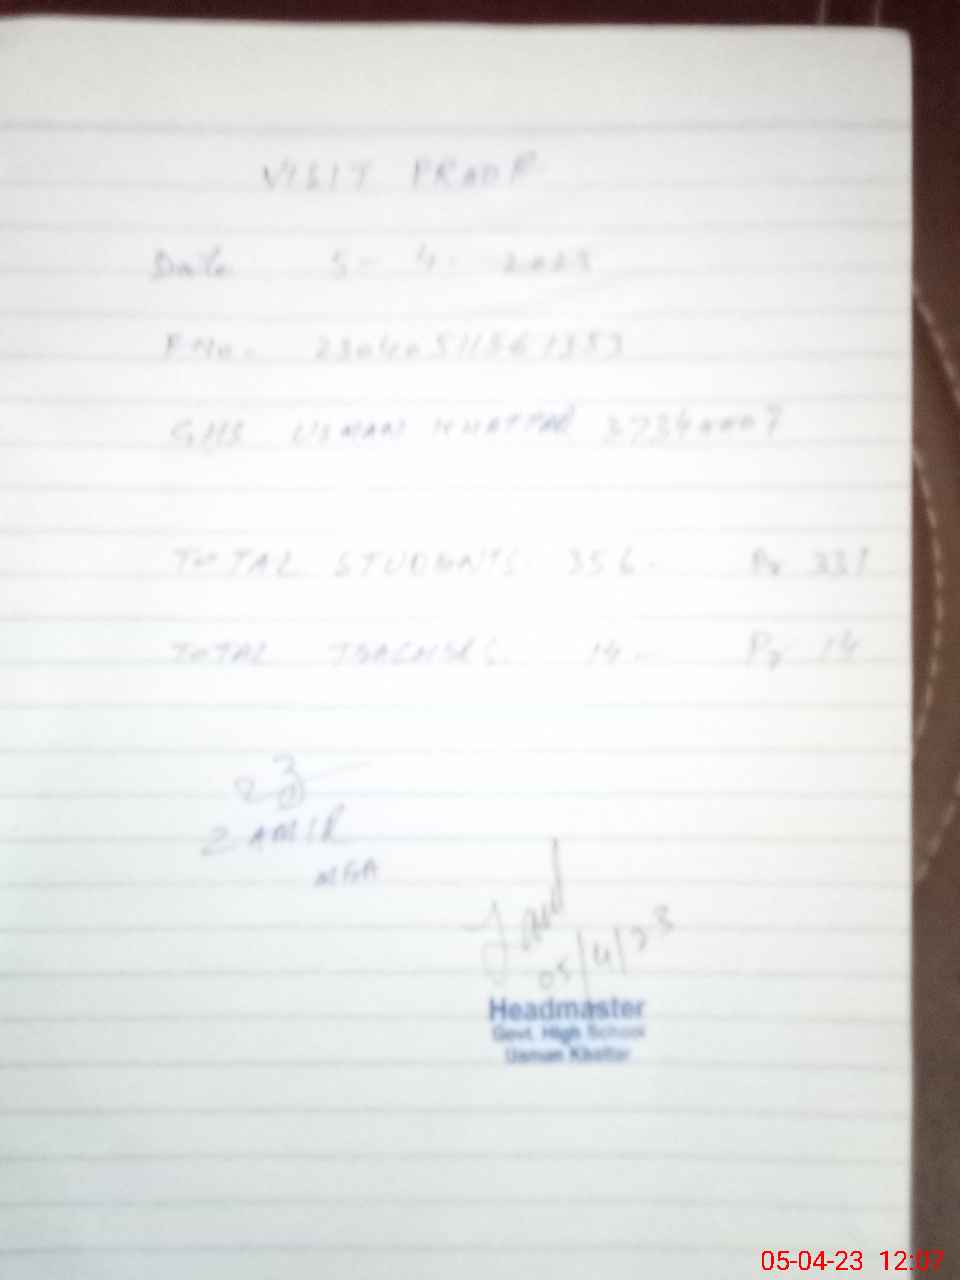 VISIT PROOF
Date 5 - 4 - 2023
F No. 23040511561353
GHS USMAN KHATTAR 37340007
TOTAL STUDENTS. 356. Pr 331
TOTAL TEACHERS. 14. Pr 14
ZAMIR
MEA
05/4/23
Headmaster
Govt. High School
Usman Khattar
05-04-23 12:07